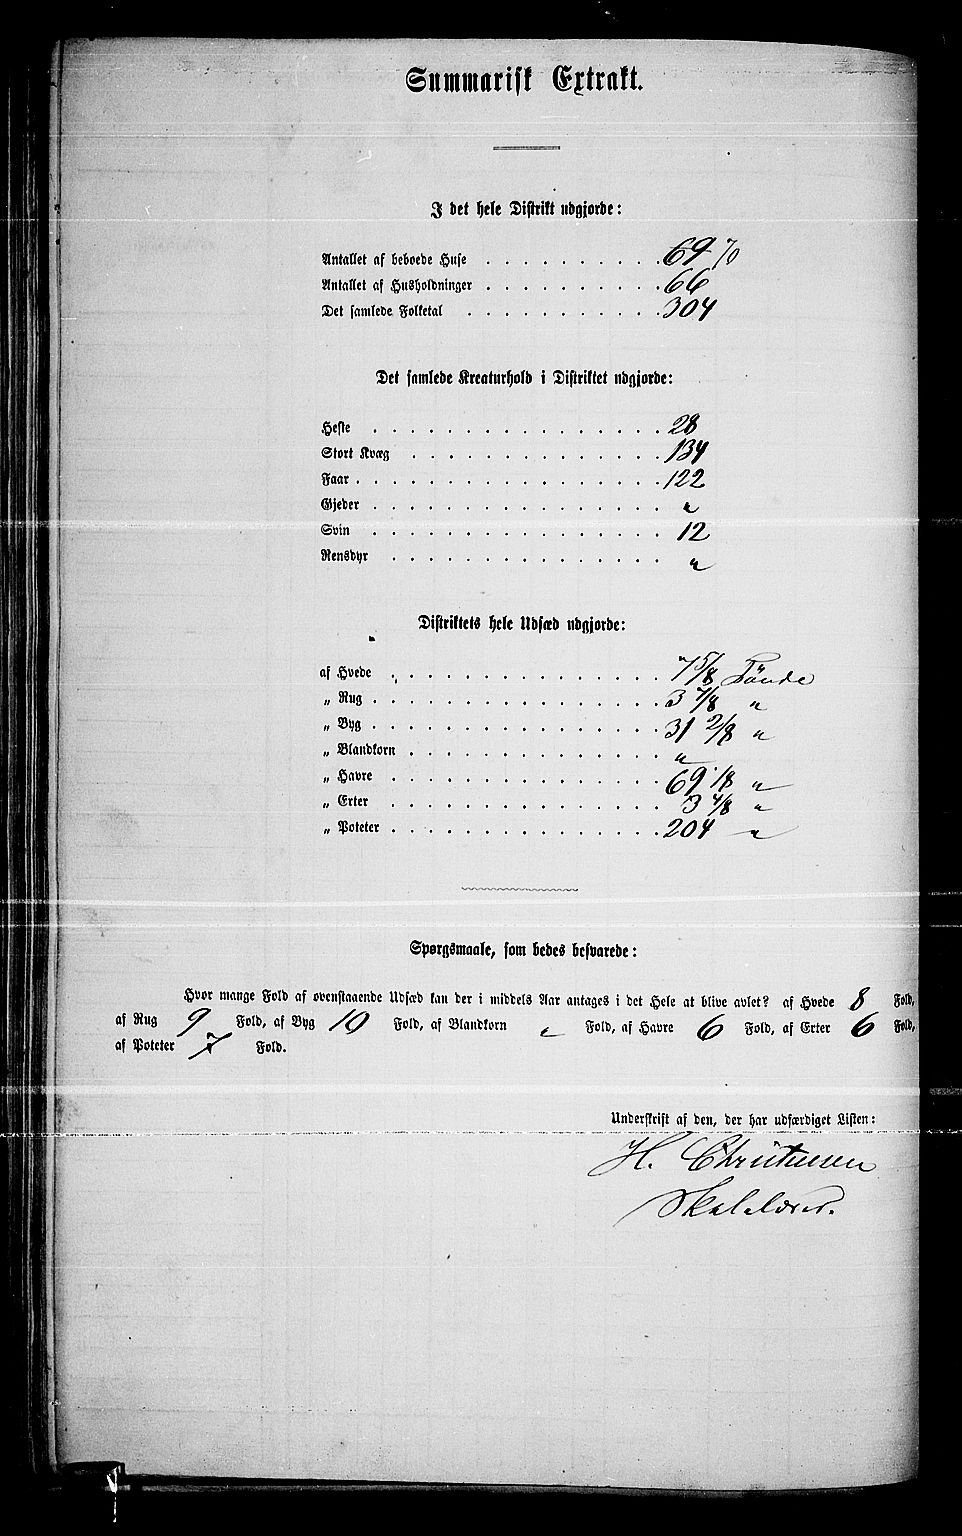 Summarisk Extrakt.
I det hele Distrikt udgjorde:
Antallet af beboede Huse . . . . . . . . . . 69 70
Antallet af Husholdninger . . . . . . . . . . 66
Det samlede Folketal . . . . . . . . . . . 304
Det samlede Kreaturhold i Distriktet udgjorde:
Heste . . . . . . . . . . . . . . . 28
Stort Kvæg . . . . . . . . . . . . . . 134
Faar . . . . . . . . . . . . . . . . 122
Gjeder . . . . . . . . . . . . . . . "
Svin . . . . . . . . . . . . . . . 12
Rensdyr . . . . . . . . . . . . . . "
Distriktets hele Udsæd udgjorde:
af Hvede . . . . . . . . . . . . . . " 7 5/8 Tønde
„ Rug . . . . . . . . . . . . . . . 3 7/8 "
„ Byg . . . . . . . . . . . . . . . 31 2/8 "
„ Blandkorn . . . . . . . . . . . . . "
„ Havre . . . . . . . . . . . . . . 69 1/8 "
„ Erter . . . . . . . . . . . . . . 3 4/8 "
„ Poteter . . . . . . . . . . . . . . 204 "
Spørgsmaale, som bedes besvarede:
Hvor mange Fold af ovenstaaende Udsæd kan der i middels Aar antages i det Hele at blive avlet? af Hvede 8 Fold,
af Rug 9 Fold, af Byg 10 Fold, af Blandkorn " Fold, af Havre 6 Fold, af Erter 6 Fold,
af Poteter 7 Fold.
Underskrift af den, der har udfærdiget Listen:
H. Christensen
Skolelærer.